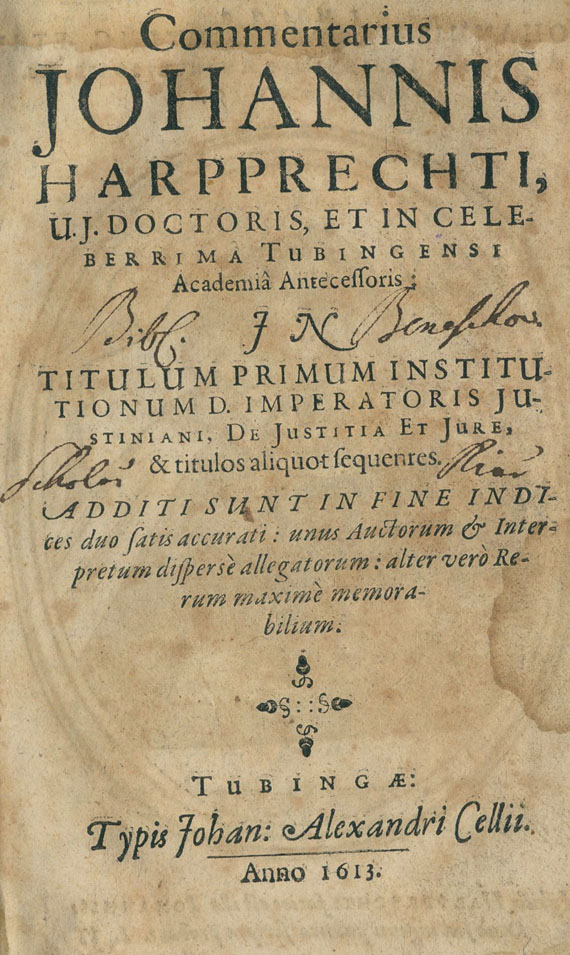 Commentarius
JOHANNIS
HARPPRECHTI,
U.J. DOCTORIS, ET IN CELE-
BERRIMA TUBINGENSI
Academiâ Antecessoris:
Bibl. IN Beneschov.
TITULUM PRIMUM INSTITU-
TIONUM D. IMPERATORIS JU-
STINIANI, DE JUSTITIA ET JURE,
& titulos aliquot sequentes.
Scholar Piar
ADDITI SUNT IN FINE INDI-
ces duo satis accurati: unus Auctorum & Inter-
pretum dispersè allegatorum: alter verò Re-
rum maximè memora-
bilium.
TUBINGÆ:
Typis Johan: Alexandri Cellii.
Anno 1613.